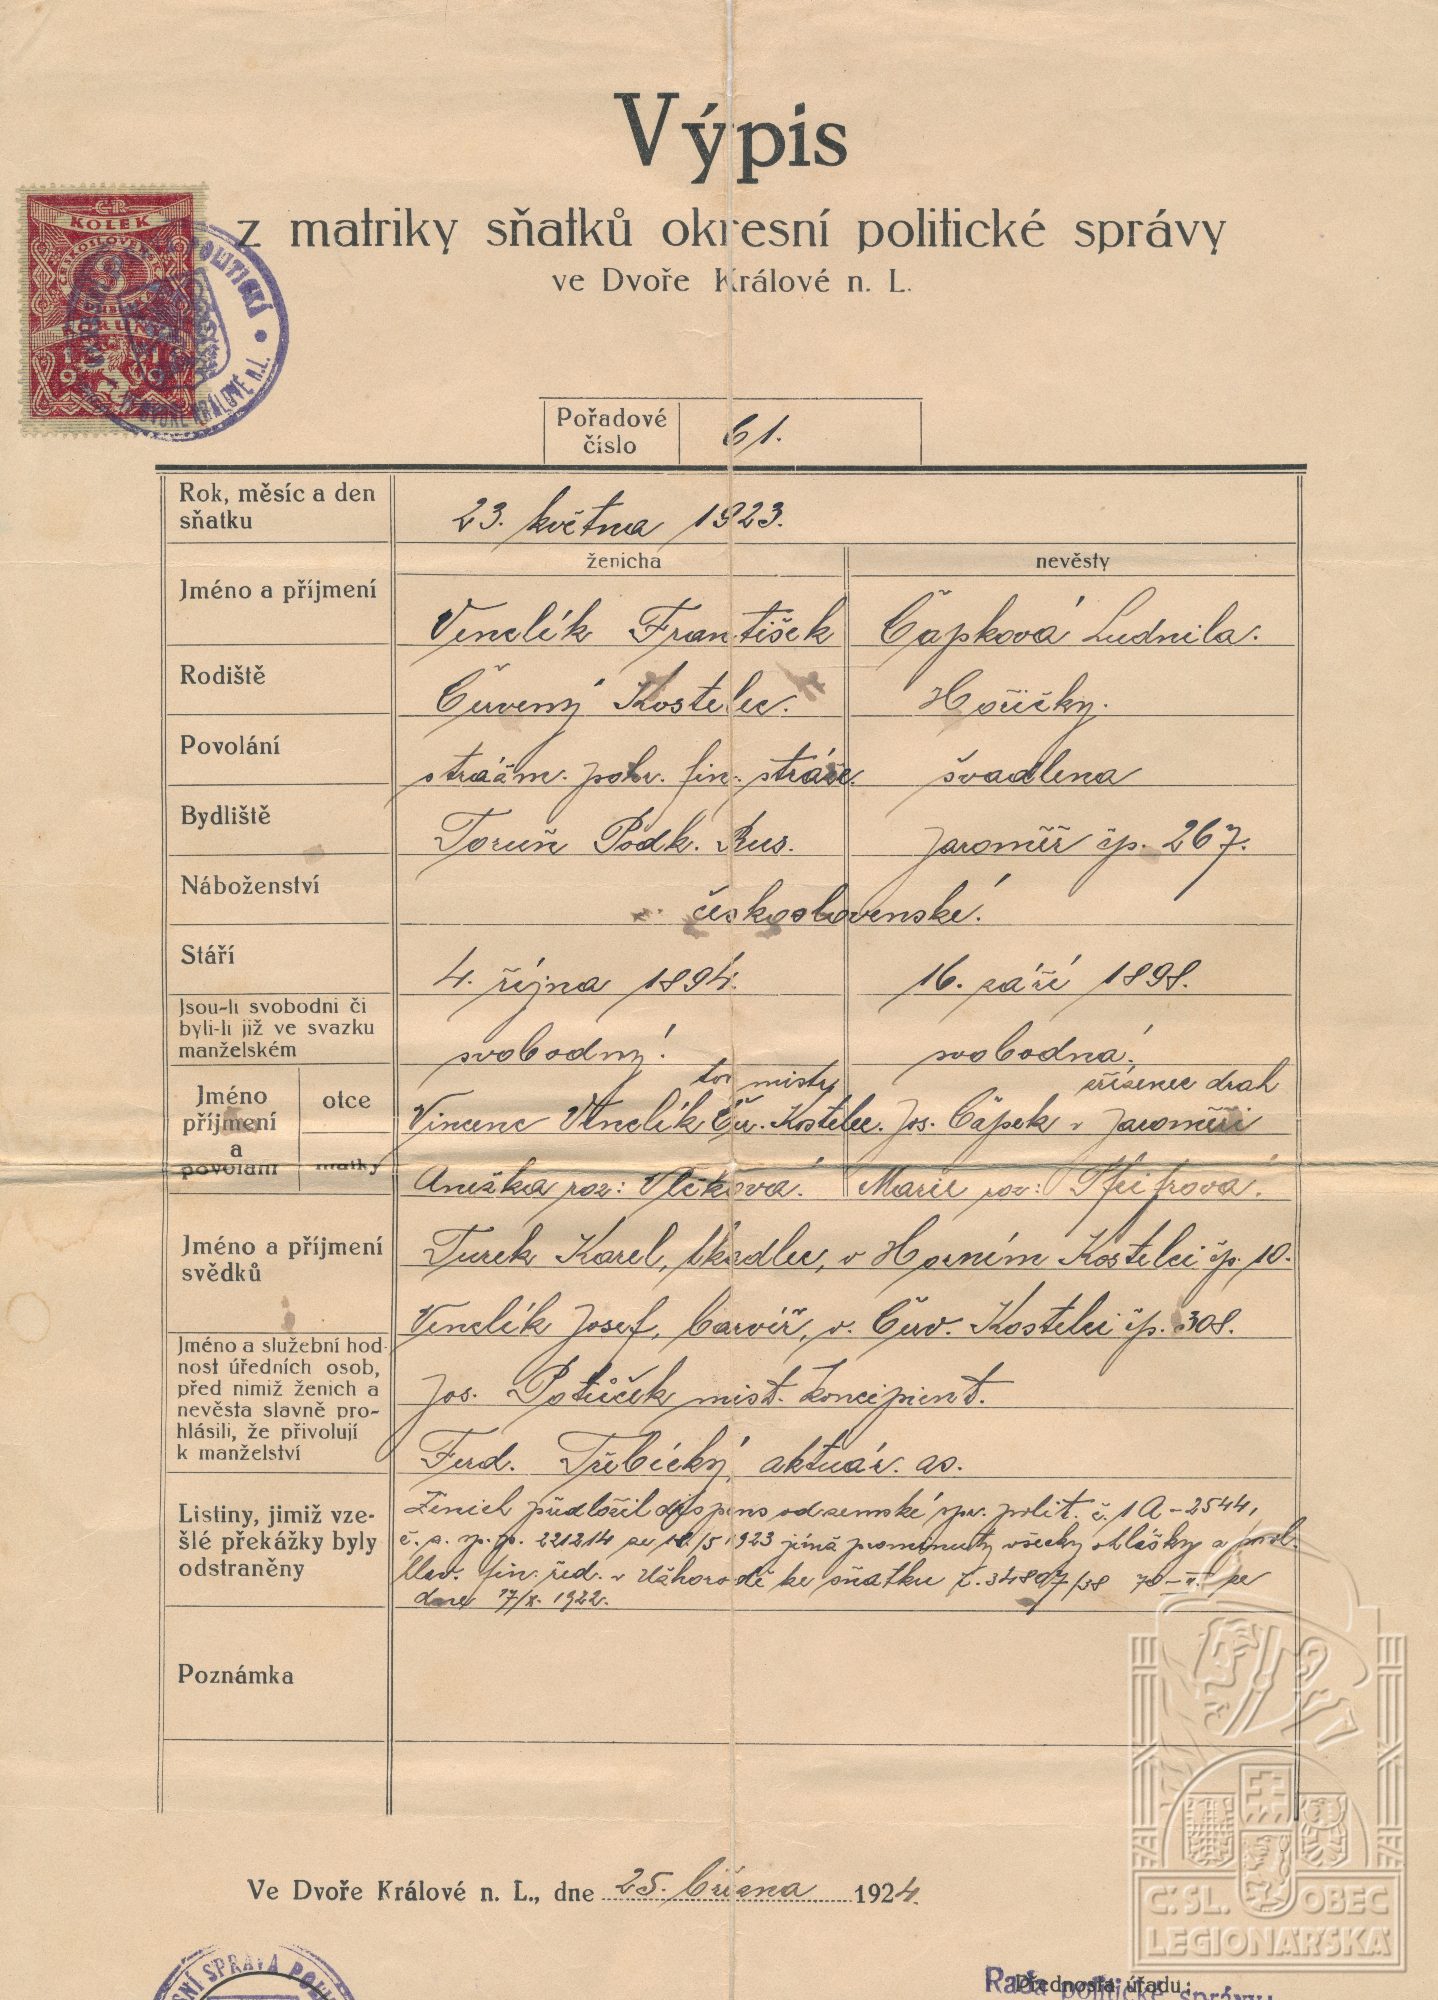 Výpis
z matriky sňatků okresní politické správy
ve Dvoře Králové n. L.
KOLEK
1919
POLITICKÁ
VE DVOŘE KRÁLOVÉ N.L.
Pořadové číslo 61.
Rok, měsíc a den sňatku 23. května 1923.
ženicha nevěsty
Jméno a příjmení Venclík František Čápková Ludmila.
Rodiště Červený Kostelec. Hořičky.
Povolání strážm. pohr. fin. stráže. švadlena
Bydliště Toruň Podk. Rus. Jaroměř čp. 267.
Náboženství československé.
Stáří 4. října 1894. 16. září 1898.
Jsou-li svobodni či
byli-li již ve svazku
manželském
svobodný. svobodná.
Jméno příjmení a povolání
otce
tov. mistr zřízenec drah
Vincenc Venclík Čer. Kostelec. Jos. Čápek v Jaroměři
matky Anežka roz: Vlčková. Marie roz: Pfeifrová.
Jméno a příjmení svědků
Turek Karel, tkadlec, v Horním Kostelci čp. 10.
Venclík Josef, barvíř, v. Červ. Kostelci čp. 308.
Jméno a služební hod-
nost úředních osob,
před nimiž ženich a
nevěsta slavně pro-
hlásili, že přivolují
k manželství
Jos. Potůček míst. koncipient.
Ferd. Třebický, aktuár. as.
Listiny, jimiž vze-
šlé překážky byly
odstraněny
Ženich předložil dispens od zemské spr. polit. č. 1A-2544,
1923 jímž prominuty všecky ohlášky a
hlav. fin. řed. v Užhorodě ke sňatku ze
dne 17/X. 1922.
Poznámka
Ve Dvoře Králové n. L., dne 25. března 1924.
SPRÁVA
Rada politické správy
Přednosta úřadu:
Č.SL. OBEC
LEGIONÁŘSKÁ